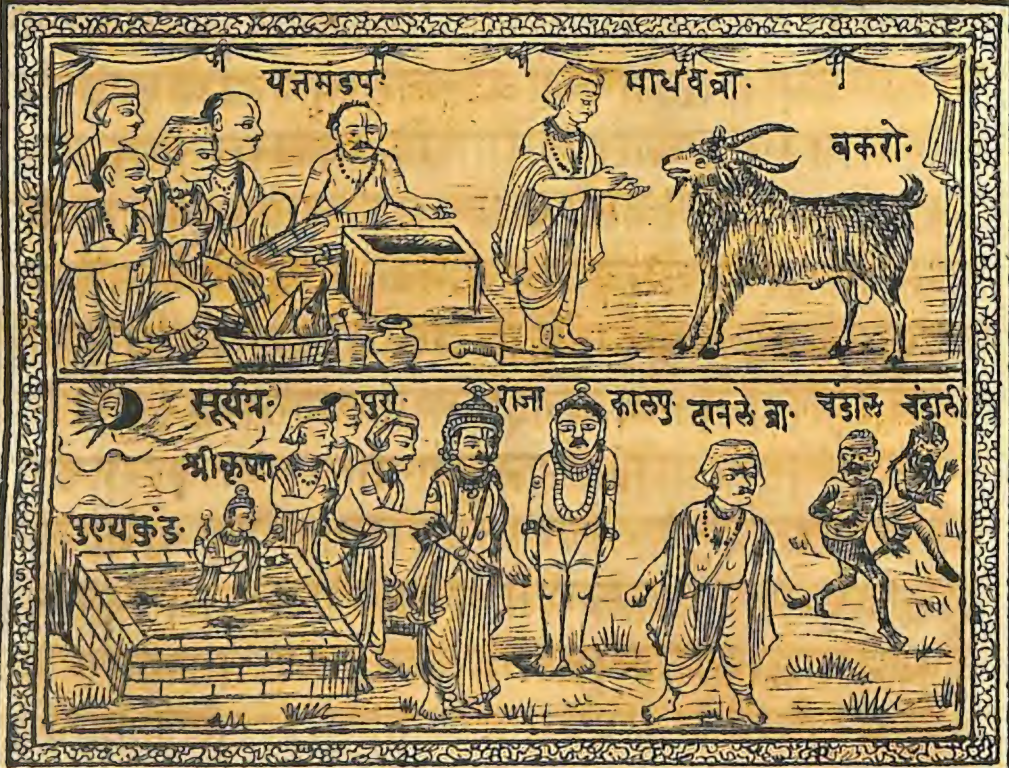 यज्ञमडप· माधवब्रा· बकरो·
सूर्यग्र· पुरो· राजा कालपु दानलेब्रा· चंडाल चंडाली
श्रीकृष्ण
पुण्यकुंड·